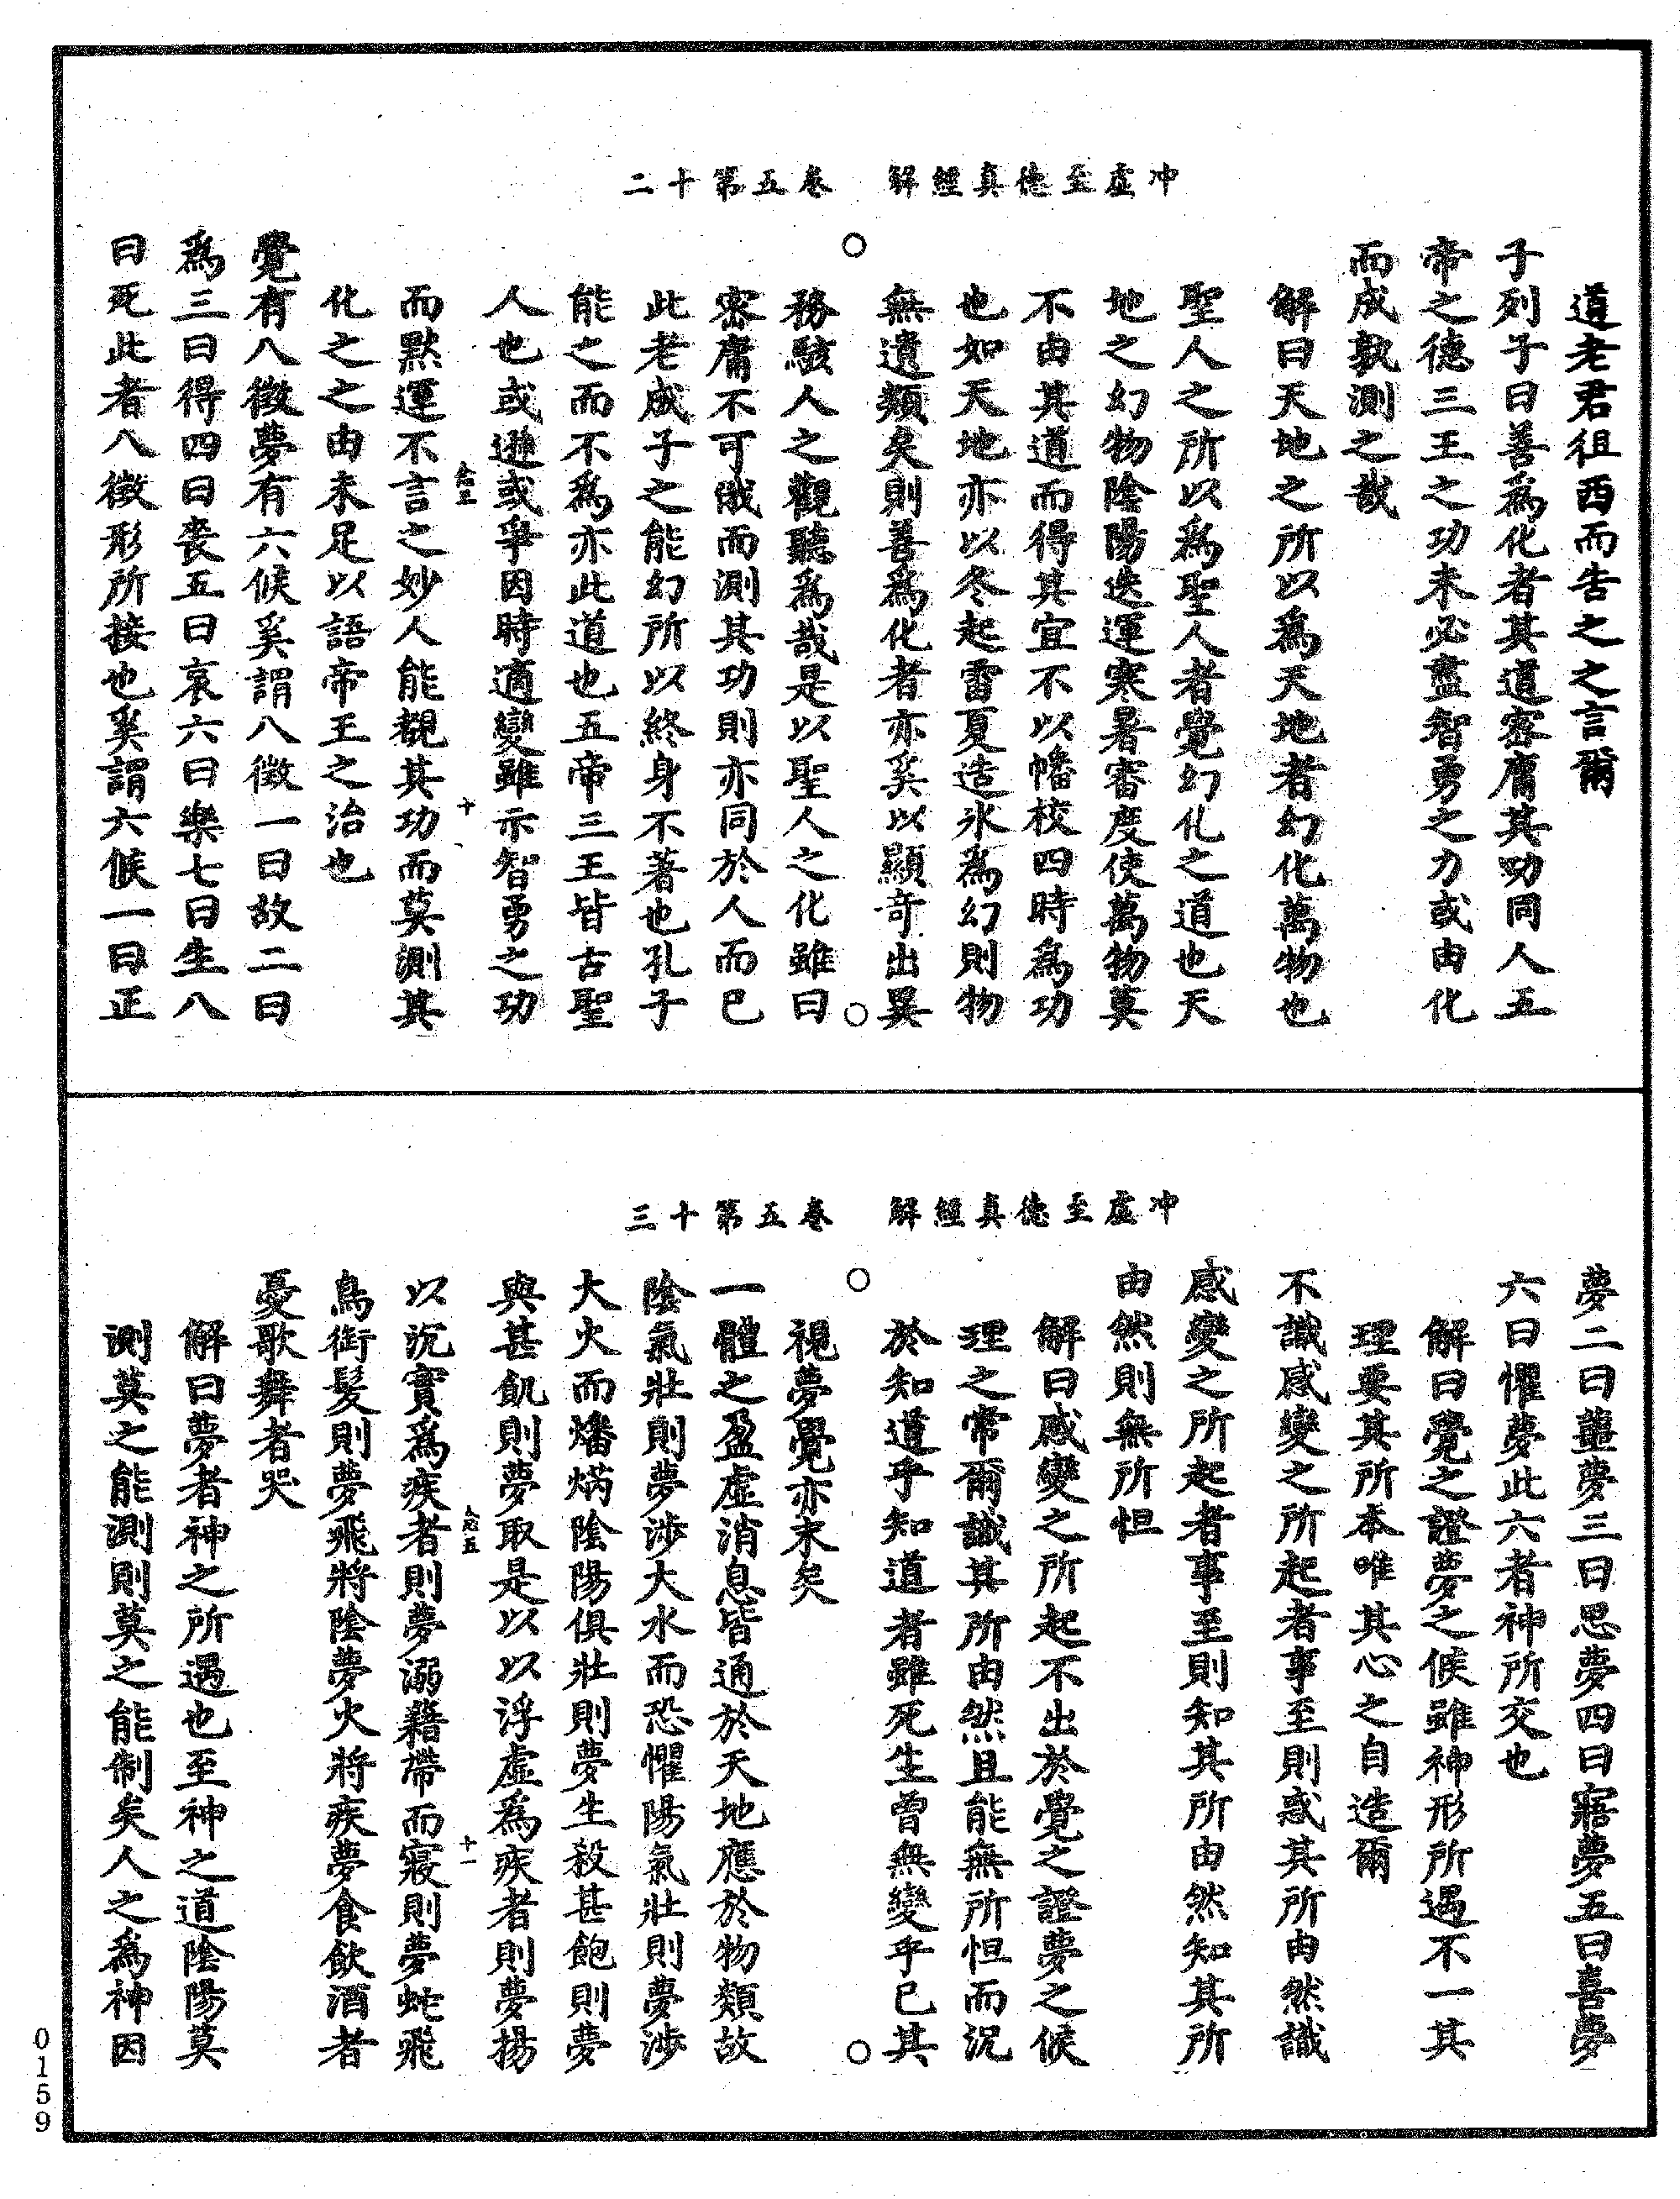 冲虛至德真經解　卷五第十二
道老君徂西而告之之言爾
子列子曰善為化者其道密庸其功同人五
帝之德三王之功未必盡智勇之力或由化
而成孰測之哉
解曰天地之所以為天地者幻化萬物也
聖人之所以為聖人者覺幻化之道也天
地之幻物陰陽迭運寒暑審度使萬物莫
不由其道而得其宜不以幡校四時為功
也如天地亦以冬起雷夏造氷為幻則物
無遺類矣則善為化者亦奚以顯奇出異
務駭人之觀聽為哉是以聖人之化雖曰
密庸不可戩而測其功則亦同於人而已
此老成子之能幻所以終身不著也孔子
能之而不為亦此道也五帝三王皆古聖
人也或遜或爭因時適變雖示智勇之功
而默運不言之妙人能覩其功而莫測其
化之之由未足以語帝王之治也
覺有八徵夢有六候奚謂八徵一曰故二曰
為三曰得四曰喪五曰哀六曰樂七曰生八
曰死此者八徵形所接也奚謂六候一曰正
十
冲虛至德真經解　卷五第十三
夢二曰蘁夢三曰思夢四曰寤夢五曰喜夢
六曰懼夢此六者神所交也
解曰覺之證夢之候雖神形所遇不一其
理要其所本唯其心之自造爾
不識感變之所起者事至則惑其所由然識
感變之所起者事至則知其所由然知其所
由然則無所怛
解曰感變之所起不出於覺之證夢之候
理之常爾識其所由然且能無所怛而況
於知道乎知道者雖死生曾無變乎已其
視夢覺亦末矣
一體之盈虛消息皆通於天地應於物類故
陰氣壯則夢涉大水而恐懼陽氣壯則夢涉
大火而燔焫陰陽俱壯則夢生殺甚飽則夢
與甚飢則夢取是以以浮虛為疾者則夢揚
以沉實為疾者則夢溺藉帶而寢則夢虵飛
鳥銜髮則夢飛將陰夢火將疾夢食飲酒者
憂歌舞者哭
解曰夢者神之所遇也至神之道陰陽莫
測莫之能測則莫之能制矣人之為神因
十一
0159